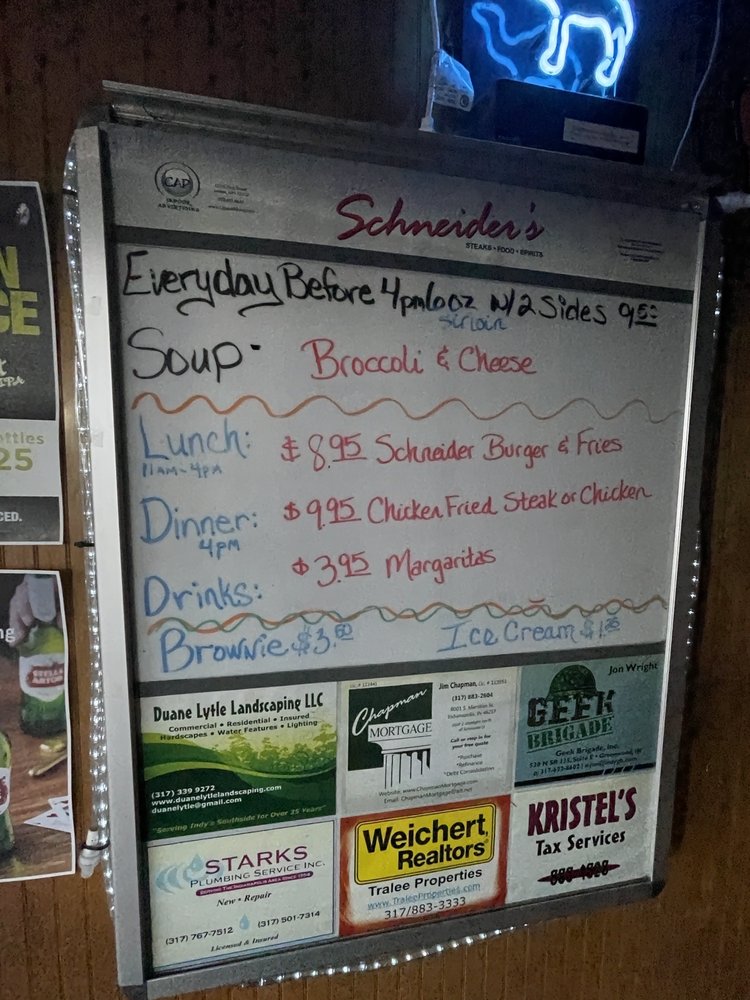 CAP
Schneider's
STEAKS • FOOD • SPIRITS
Everyday Before 4pm 6oz W/2 Sides 9.50
sirloin
Soup- Broccoli & Cheese
Lunch: $8.95 Schneider Burger & Fries
11AM-4PM
Dinner: $9.95 Chicken Fried Steak or Chicken
4pm
Drinks: $3.95 Margaritas
Brownie $3.50 Ice Cream $1.25
Duane Lytle Landscaping LLC
Commercial • Residential • Insured
Hardscapes • Water Features • Lighting
(317) 339 9272
www.duanelytlelandscaping.com
duanelytle@gmail.com
"Serving Indy's Southside for Over 25 Years"
Jim Chapman,
(317) 883-2604
8001 S. Meridian St.
Indianapolis, IN 46217
Call or stop in for
your free quote
*Purchase
*Refinance
*Debt Consolidation
Chapman
MORTGAGE
Website: www.ChapmanMortgage.com
Email: ChapmanMortgage@att.net
Jon Wright
GEEK
BRIGADE
Geek Brigade, Inc.
STARKS
PLUMBING SERVICE INC.
SERVING THE INDIANAPOLIS AREA SINCE 1954
New • Repair
(317) 767-7512 (317) 501-7314
Licensed & Insured
Weichert,
Realtors®
Tralee Properties
www.TraleeProperties.com
317/883-3333
KRISTEL'S
Tax Services
N
CE
ttles
25
CED.
ng
STELLA
ARTOIS